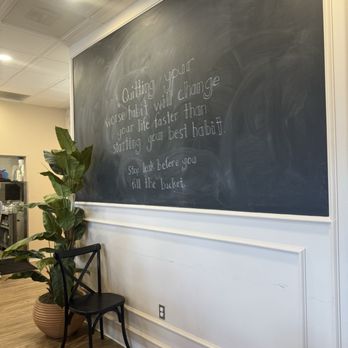 Quitting your
worse habit will change
your life faster than
starting your best habit.
Stop leak before you
fill the bucket.